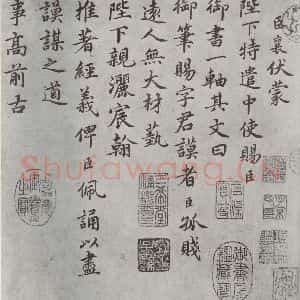 臣襄伏蒙
陛下特遣中使賜臣
御書一軸其文曰
御筆賜字君謨者臣孤賤
遠人無大材藝
陛下親灑宸翰
推著經義俾臣佩誦以盡
謨謀之道
事高前古
Shufawang.cn